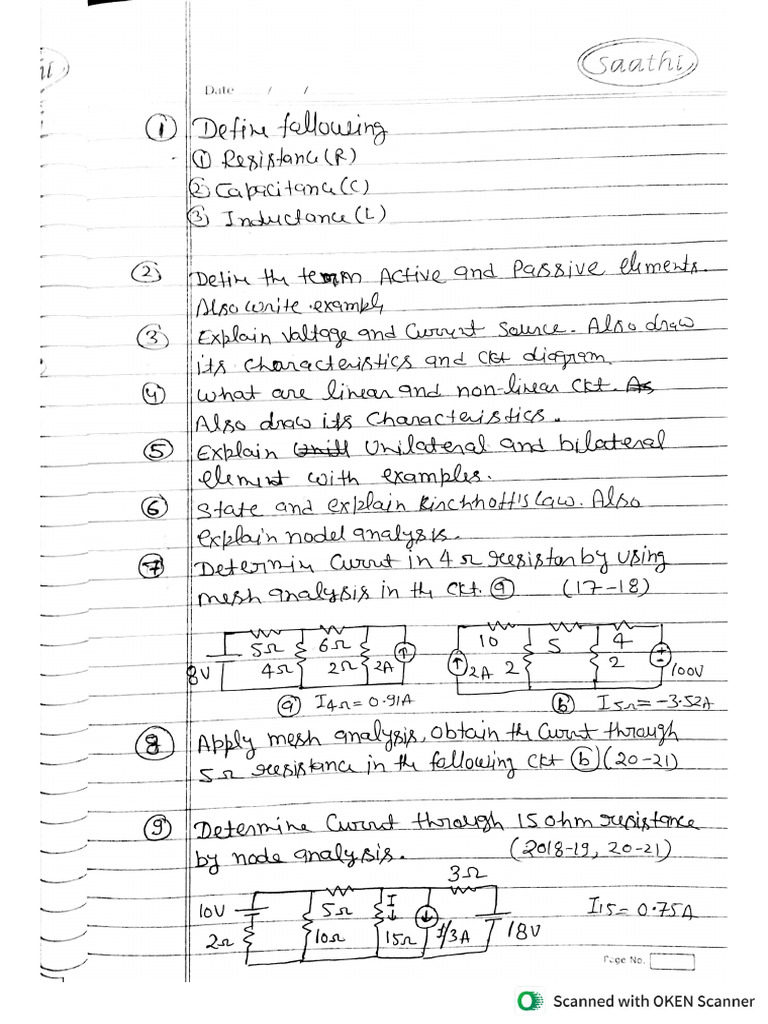 Saathi
Date / /
① Define following
① Resistance (R)
② Capacitance (C)
③ Inductance (L)
② Define the term Active and Passive elements.
Also write example
③ Explain Voltage and Current Source. Also draw
its Characteristics and Ckt diagram.
④ What are linear and non-linear Ckt.
Also draw its Characteristics.
⑤ Explain Unilateral and bilateral
element with examples.
⑥ State and explain Kirchhoff's Law. Also
explain nodel analysis.
⑦ Determin Current in 4Ω resistor by using
mesh analysis in the Ckt. ⓐ (17-18)
5Ω 6Ω 10 5 4
8V 4Ω 2Ω 2A 2A 2 2 100V
ⓐ I4Ω = 0.91A ⓑ I5Ω = -3.52A
⑧ Apply mesh analysis, obtain the Current through
5Ω resistance in the following Ckt ⓑ (20-21)
⑨ Determine Current through 15 ohm resistance
by node analysis. (2018-19, 20-21)
3Ω
10V 5Ω I I15 = 0.75A
2Ω 10Ω 15Ω I/3A 18V
Page No.
Scanned with OKEN Scanner